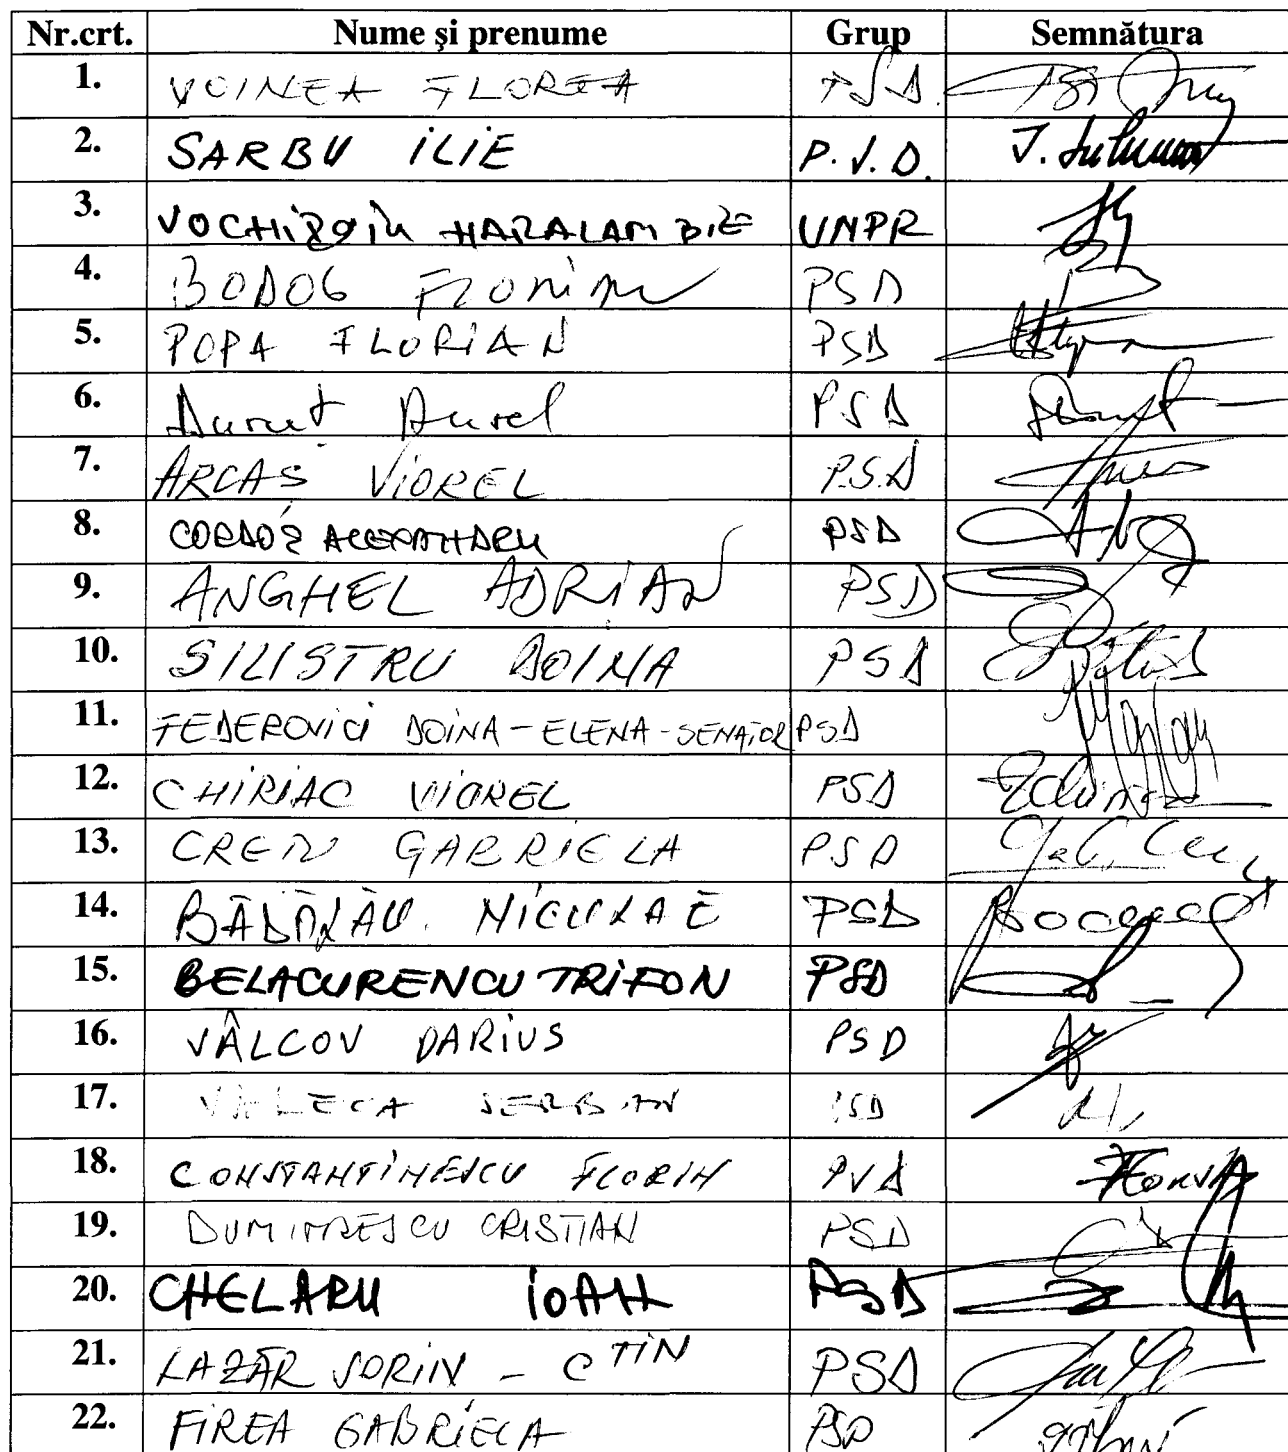 Nr.crt. Nume şi prenume Grup Semnătura
1. VOINEA FLOREA PSD
2. SARBU ILIE P.S.D.
3. VOCHIŢOIU HARALAMBIE UNPR
4. BODOG Florian PSD
5. POPA FLORIAN PSD
6. Durut Aurel PSD
7. ARCAŞ VIOREL P.S.D
8. CORDOŞ ALEXANDRU PSD
9. ANGHEL ADRIAN PSD
10. SILISTRU DOINA PSD
11. FEDEROVICI DOINA-ELENA-SENATOR PSD
12. CHIRIAC VIOREL PSD
13. CREŢU GABRIELA PSD
14. BĂDĂLĂU NICULAE PSD
15. BELACURENCU TRIFON PSD
16. VÂLCOV DARIUS PSD
17. VALECA SERBAN PSD
18. CONSTANTINESCU FLORIN PSD
19. DUMITRESCU CRISTIAN PSD
20. CHELARU IOAN PSD
21. LAZĂR SORIN - CTIN PSD
22. FIREA GABRIELA PSD